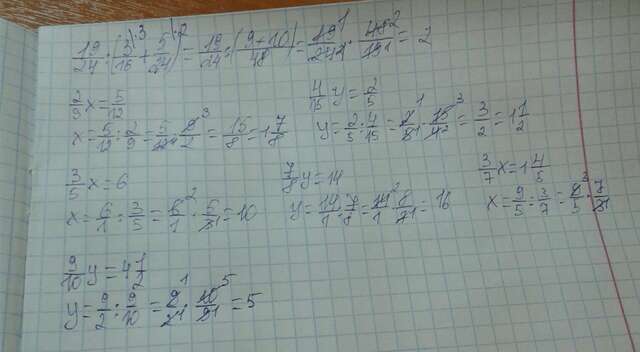 19/24 : (3/16 + 5/24) = 19/24 : (9+10/48) = 19/24 · 48/19 = 2
2/9 x = 5/12
x = 5/12 : 2/9 = 5/12 · 9/2 = 15/8 = 1 7/8
4/15 y = 2/5
y = 2/5 : 4/15 = 2/5 · 15/4 = 3/2 = 1 1/2
3/5 x = 6
x = 6/1 : 3/5 = 6/1 · 5/3 = 10
7/8 y = 14
y = 14/1 : 7/8 = 14/1 · 8/7 = 16
3/7 x = 1 4/5
x = 9/5 : 3/7 = 9/5 · 7/3
9/10 y = 4 1/2
y = 9/2 : 9/10 = 9/2 · 10/9 = 5